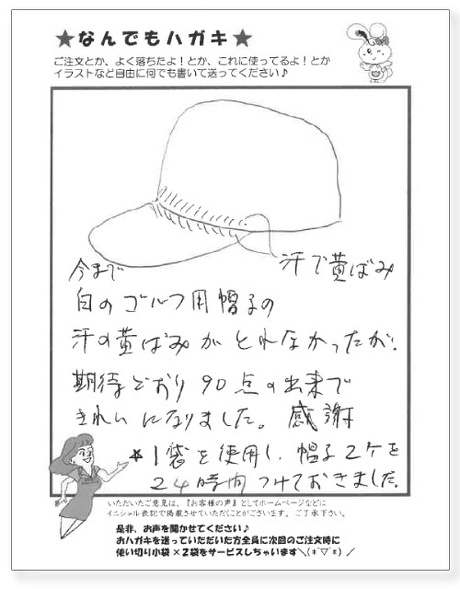 ★なんでもハガキ★
ご注文とか、よく落ちたよ！とか、これに使ってるよ！とか
イラストなど自由に何でも書いて送ってください♪
汗で黄ばみ
今まで
白のゴルフ用帽子の
汗の黄ばみがとれなかったが、
期待どおり90点の出来で
きれいになりました。感謝
★1袋を使用し、帽子2ケを
24時間つけておきました。
いただいたご意見は、『お客様の声』としてホームページなどに
イニシャル表記で掲載させていただくことがございます。ご了承下さい。
是非、お声を聞かせてください♪
おハガキを送っていただいた方全員に次回のご注文時に
使い切り小袋×2袋をサービスしちゃいます＼(*ﾟ▽ﾟ*)／